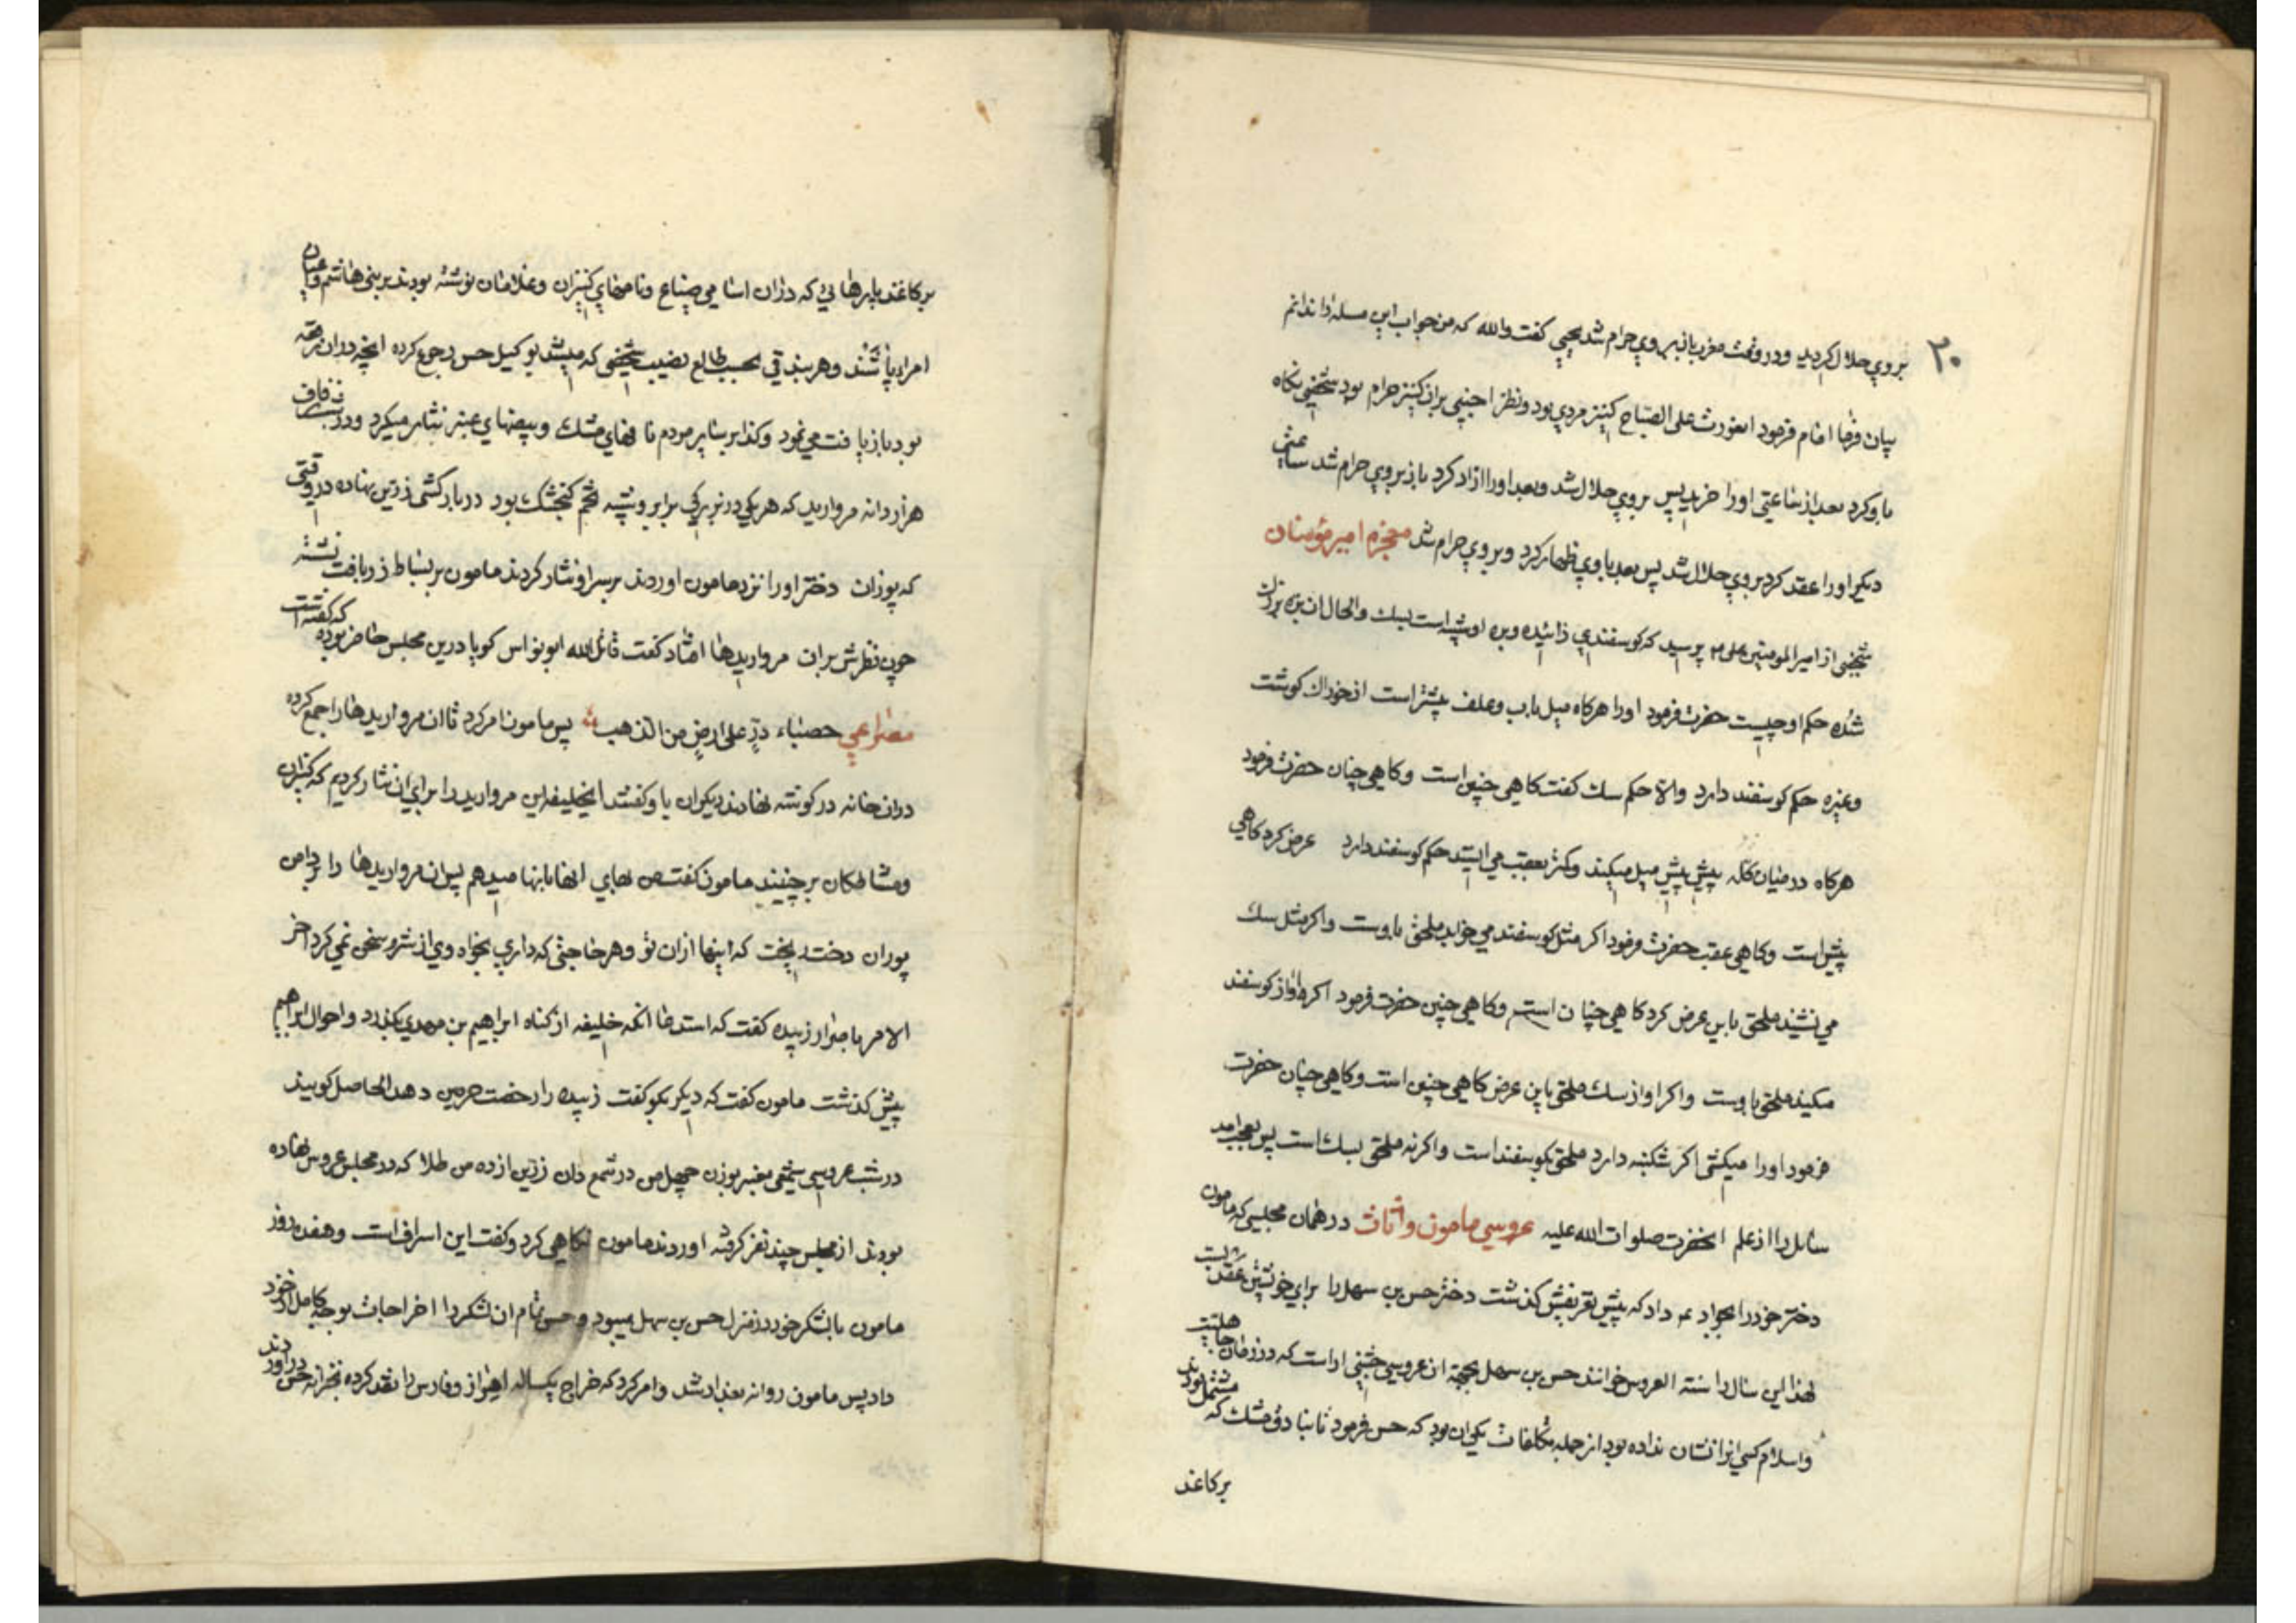 ۲۰
بروي حلال كرديد ودر وقت مغرب باز بروي حرام شد يحيي كفت والله كه من جواب اين مسله را ندانم
بيان فرما امام فرمود انعورت على الصباح كنيز مردي بود ونظر اجنبي بران كنيز حرام بود شخصي نكاه
باو كرد بعد از ساعتي اورا خريد پس بروي حلال شد وبعد اورا ازاد كرد باز بروي حرام شد ساعتي
ديكر اورا عقد كرد بروي حلال شد پس بعد باوي ظهار كرد وبروي حرام شد معجزه امير مؤمنان
شخصي از امير المومنين علي ۴ پرسيد كه كوسفندي زائيده وبره او شبيه است بسك والحال ان بره بزرك
شده حكم او چيست حضرت فرمود اورا هركاه ميل باب وعلف بيشتر است از خوراك كوشت
وغيره حكم كوسفند دارد والا حكم سك كفت كاهي چنين است وكاهي چنان حضرت فرمود
هركاه درميان كله پيش پيش ميل ميكند وكمتر بعقب مي ايستد حكم كوسفند دارد عرض كرد كاهي
پيش است وكاهي عقب حضرت فرمود اكر مثل كوسفند مي خوابد ملحق باوست واكر مثل سك
مي نشيند ملحق باين عرض كرد كاهي چنان است وكاهي چنين حضرت فرمود اكر اواز كوسفند
ميكند ملحق باوست واكر اواز سك ملحق باين عرض كاهي چنين است وكاهي چنان حضرت
فرمود اورا ميكشي اكر شكنبه دارد ملحق بكوسفند است واكرنه ملحق بسك است پس بعجب امد
سائل را از علم انحضرت صلوات الله عليه عروسي مامون واثاث در همان مجلسي كه مامون
دختر خود را بجواد ۴ داد كه پيش تعريفش كذشت دختر حسن بن سهل را براي خويش عقد بست
لهذا اين سال را سنة العروس خوانند حسن بن سهل بجهة ان عروسي جشني اراست كه در زمان جاهليت
واسلام كسي انرا نشان نداده بود از جمله تكلفات يكي ان بود كه حسن فرمود تا بنادق مشك كه مشتمل بودند
بركاغذ
بركاغذ پارهائي كه دران اسامي ضياع ونامهاي كنيزان وغلامان نوشته بودند بر بني هاشم وعيان
امرا پاشند وهر بندقي بحسب طالع نصيب شخصي كه ميشد بوكيل حسن رجوع كرده انچه دران رقعه
بود بازيافت مي نمود وكذا بر ساير مردم نافهاي مشك وبيضهاي عنبر نثار ميكرد ودر شب زفاف
هزار دانه مرواريد كه هريكي در بزركي برابر وشبيه تخم كنجشك بود دربار كشي زرين نهاده در وقتي
كه بوران دختر اورا نزد مامون اوردند برسر او نثار كردند مامون بر بساط زربافت نشسته
چون نظرش بران مرواريدها افتاد كفت قاتل الله ابونواس كويا درين مجلس حاضر بوده كه كفته است
مصراعي حصباء درٍ على ارضٍ من الذهب پس مامون امر كرد تا ان مرواريدها را جمع كرده
دران خانه دركوشه نهادند ديكران باو كفتند ايخليفه اين مرواريد را براي ان نثار كرديم كه كنيزان
ومشاطكان برچينند مامون كفت من بهاي انها بانها ميدهم پس ان مرواريدها را بدامن
بوران دخت ريخت كه اينها ازان تو وهر حاجتي كه داري بخواه وي از شرم سخني نمي كرد اخر
الامر باصرار زبيده كفت كه استدعا انكه خليفه از كناه ابراهيم بن مهدي بكذرد واحوال ابراهيم
پيش كذشت مامون كفت كه ديكر بكو كفت زبيده را رخصت حرمين دهد الحاصل كويند
در شب عروسي شمعي معنبر بوزن چهل من در شمع دان زرين از ده من طلا كه در مجلس عروس نهاده
بودند از مجلس چند نفر كرفته اوردند مامون نكاهي كرد وكفت اين اسراف است وهفده روز
مامون بالشكر خود در منزل حسن بن سهل ميبود وحسن تمام ان لشكر را اخراجات بوجه كامل از خود
داد پس مامون روانه بغداد شد وامر كرد كه خراج يكساله اهواز وفارس را نقد كرده بخزانه حسن دراوردند